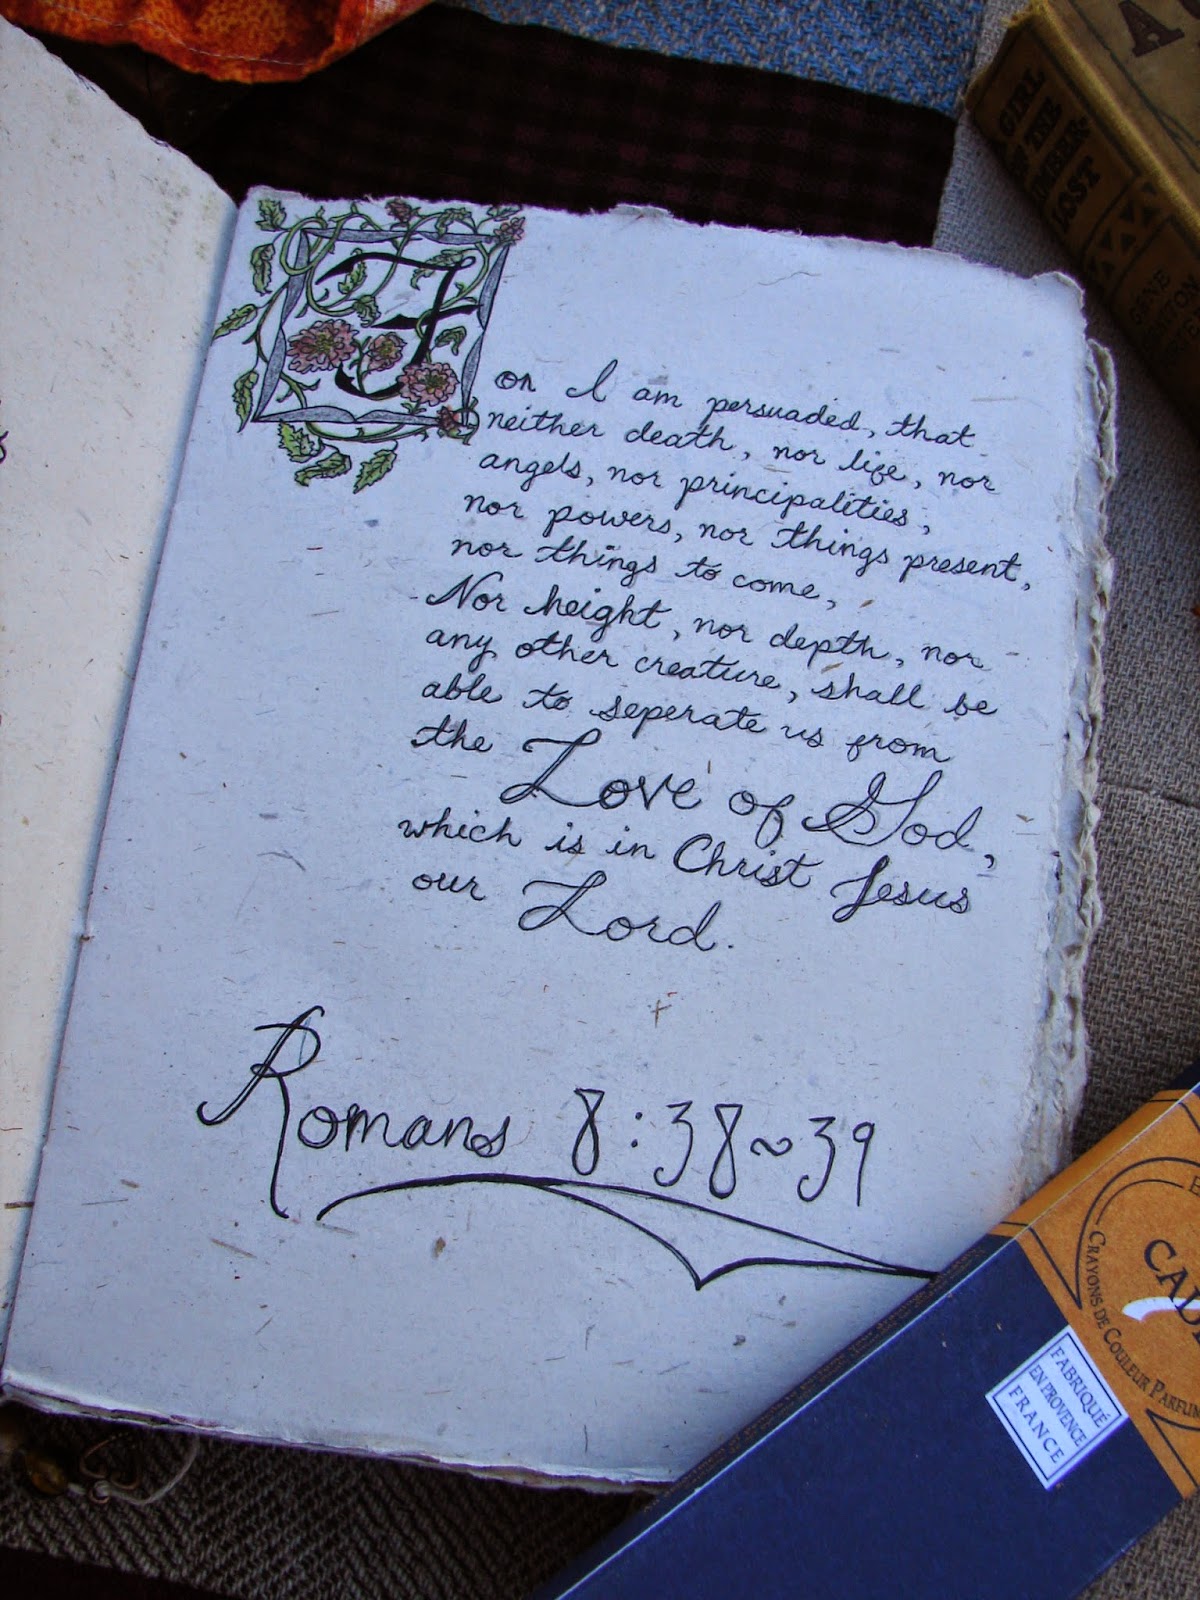 For I am persuaded, that
neither death, nor life, nor
angels, nor principalities,
nor powers, nor things present,
nor things to come,
Nor height, nor depth, nor
any other creature, shall be
able to seperate us from
the Love of God,
which is in Christ Jesus
our Lord.
Romans 8:38~39
A
GIRL
OF THE
LIMBERLOST
GENE
CRAYONS DE COULEUR
FABRIQUÉ
EN PROVENCE
FRANCE